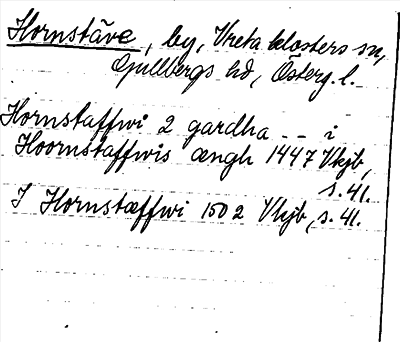 Hornstäve, by, Vreta klosters sn,
Gullbergs hd, Österg. l.
Hornstaffwi 2 gardha -- i
Hoornstaffwis ængh 1447 Vkjb,
s. 41.
I Hornstæffwi 1502 Vkjb, s. 41.